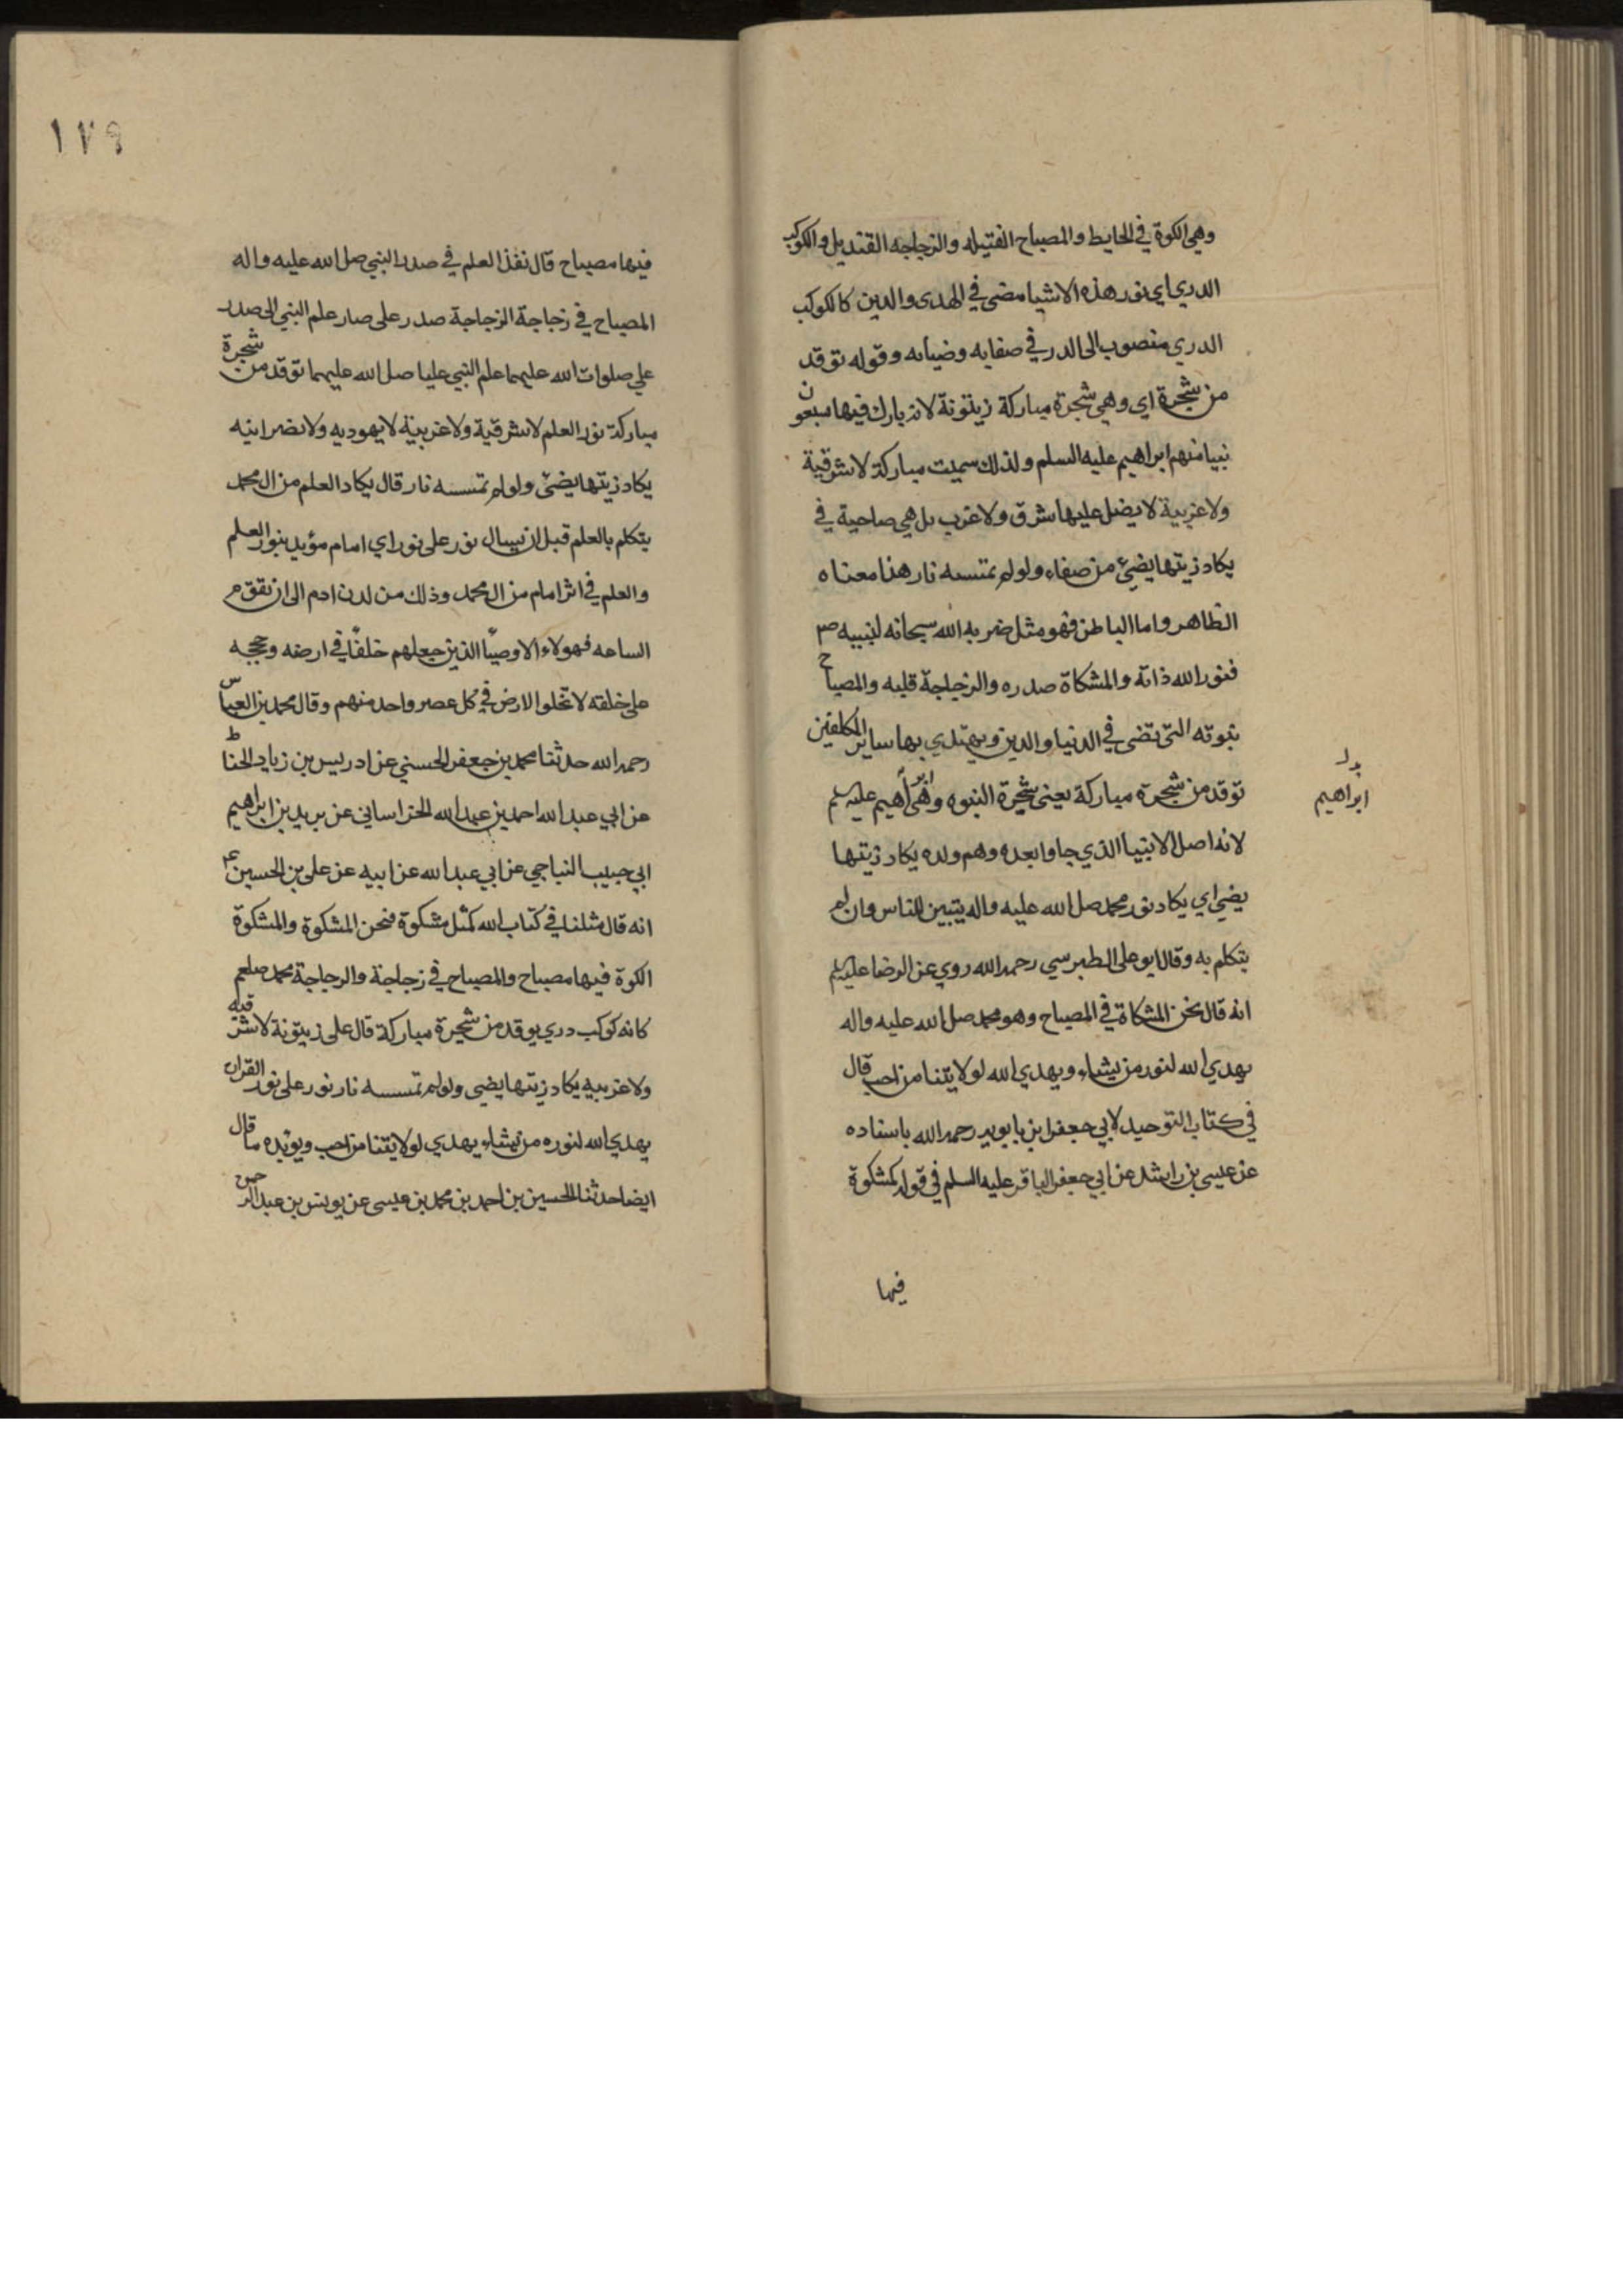 وهي الكوة في الحايط والمصباح الفتيله والزجاجه القنديل والكوكب
الدري اي نور هذه الاشيا مضي في الهدى والدين كالكوكب
الدري منصوب الى الدر في صفايه وضيايه وقوله توقد
من شجرة اي وهي شجرة مباركة زيتونة لانه بارك فيها سبعون
نبيا منهم ابراهيم عليه السلم ولذلك سميت مباركة لا شرقية
ولا غربية لا يضل عليها شرق ولا غرب بل هي صاحية في
يكاد زيتها يضئ من صفاء ولو لم تمسسه نار هذا معناه
الظاهر واما الباطن فهو مثل ضربه الله سبحانه لنبيه ص
فنور الله ذاته والمشكاة صدره والزجاجة قلبه والمصباح
نبوته التي تضى في الدنيا والدين ويهتدي بها ساير المكلفين
توقد من شجرة مباركة يعنى شجرة النبوه وهي ابراهيم عليه سلم
بدل
ابراهيم
لانه اصل الانبيا الذي جاوا بعده وهم ولده يكاد زيتها
يضي اي يكاد نور محمد صل الله عليه واله يتبين للناس وان لم
يتكلم به وقال ابو على الطبرسي رحمه الله روي عن الرضا عليه سلم
انه قال نحن المشكاة في المصباح وهو محمد صل الله عليه واله
يهدي الله لنور من يشاء ويهدي الله لولايتنا من احب قال
في كتاب التوحيد لابي جعفر ابن بابويه رحمه الله باسناده
عن عيسى بن راشد عن ابي جعفر الباقر عليه السلم في قوله كمشكوة
فيها
١٧٩
فيها مصباح قال نفذ العلم في صدر النبي صل الله عليه واله
المصباح في زجاجة الزجاجة صدر على صار علم النبي الى صدر
علي صلوات الله عليهما علم النبي عليا صل الله عليهما توقد من شجرة
مباركة نور العلم لا شرقية ولا غربية لا يهوديه ولا نصرانيه
يكاد زيتها يضئ ولو لم تمسسه نار قال يكاد العلم من ال محمد
يتكلم بالعلم قبل ان يسال نور على نور اي امام مؤيد بنور العلم
والعلم في اثر امام من ال محمد وذلك من لدن ادم الى ان تقوم
الساعه فهولاء الاوصيا الذين جعلهم خلفا في ارضه وحججه
على خلقه لا تخلو الارض في كل عصر واحد منهم وقال محمد بن العباس
رحمه الله حدثنا محمد بن جعفر الحسني عن ادريس بن زياد الحناط
عن ابي عبد الله احمد بن عبد الله الخراساني عن بريد بن ابراهيم
ابي حبيب النباجي عن ابي عبد الله عن ابيه عن على بن الحسين ع
انه قال مثلنا في كتاب الله كمثل مشكوة فنحن المشكوة والمشكوة
الكوة فيها مصباح والمصباح في زجاجة والزجاجة محمد صلعم
كانه كوكب دري يوقد من شجرة مباركة قال على زيتونة لا شرقيه
ولا غربيه يكاد زيتها يضي ولو لم تمسسه نار نور على نور القران
يهدي الله لنوره من يشاء يهدي لولايتنا من احب ويؤيده ما قال
ايضا حدثنا الحسين بن احمد بن محمد بن عيسى عن يونس بن عبد الرحمن